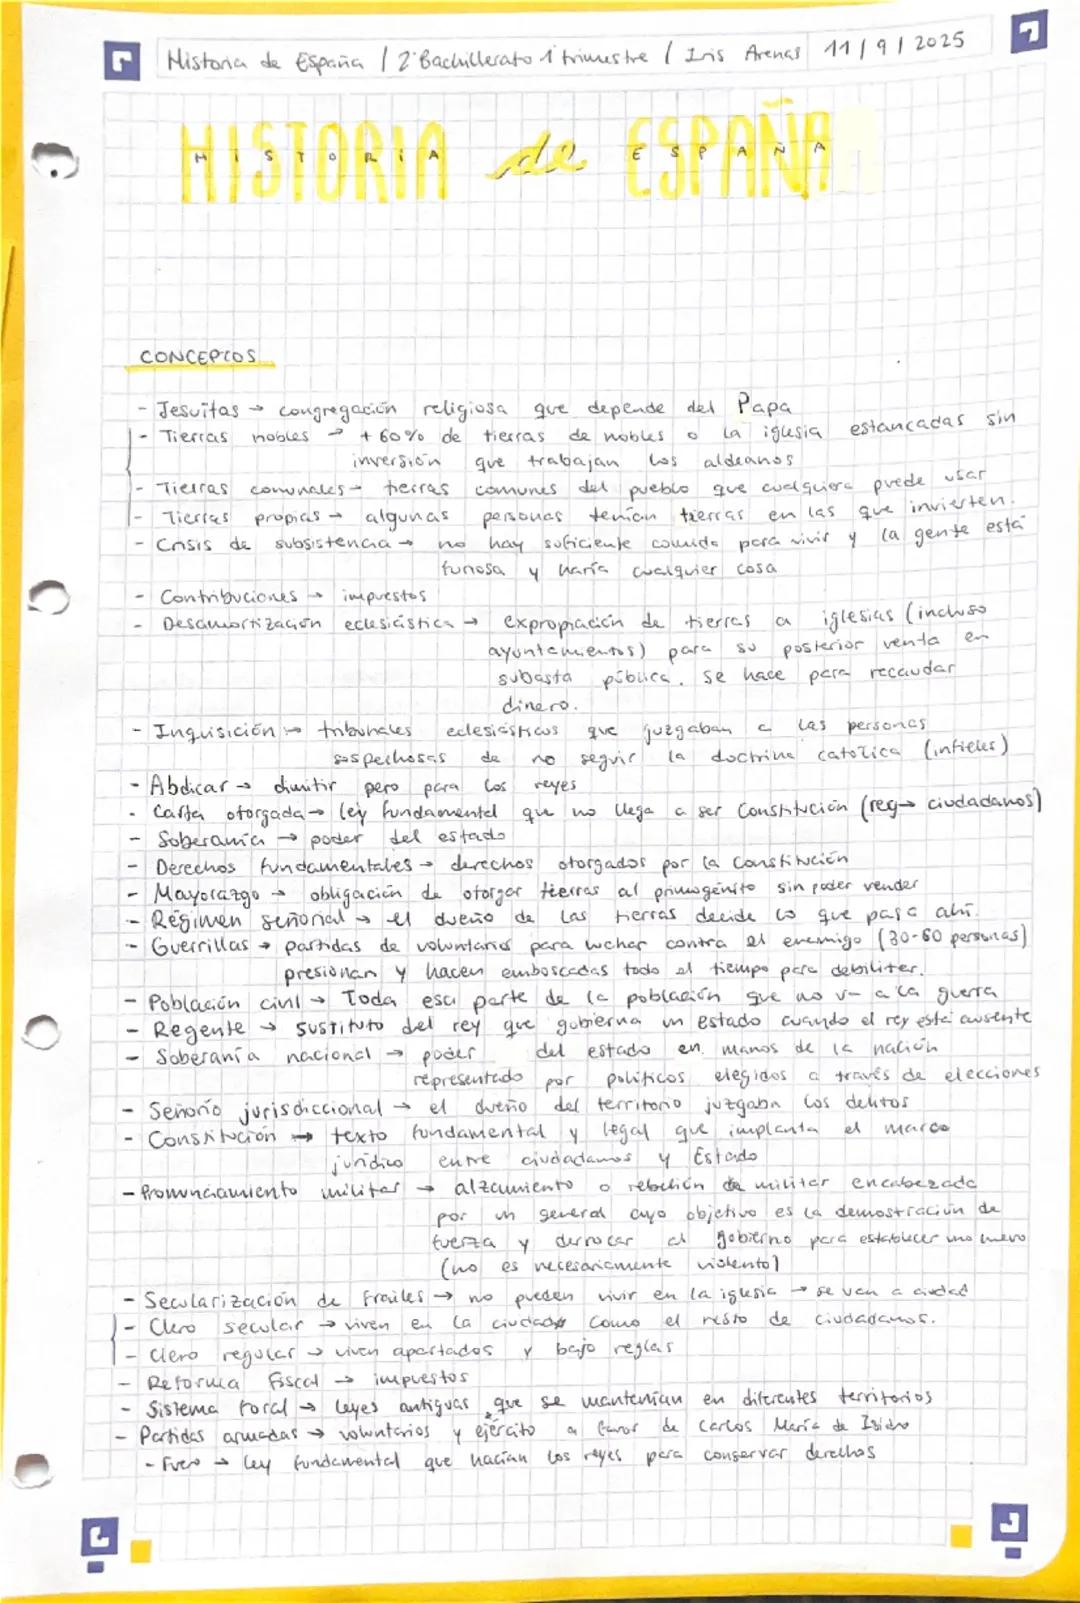 Historia de España / 2ºBachillerato 1 trimestre / Iris Arenas 11/9/2025
HISTORIA de ESPAÑA
CONCEPTOS
- Jesuitas → congregación religiosa que depende del Papa
- Tierras nobles → + 60% de tierras de nobles o la iglesia estancadas sin
inversión que trabajan los aldeanos
- Tierras comunales → tierras comunes del pueblo que cualquiera puede usar
- Tierras propias → algunas personas tenían tierras en las que invierten.
- Crisis de subsistencia → no hay suficiente comida para vivir y la gente está
furiosa y haría cualquier cosa
- Contribuciones → impuestos
- Desamortización eclesiástica → expropiación de tierras a iglesias (incluso
ayuntamientos) para su posterior venta en
subasta pública. Se hace para recaudar
dinero.
- Inquisición → tribunales eclesiásticos que juzgaban a las personas
sospechosas de no seguir la doctrina católica (infieles)
- Abdicar → dimitir pero para los reyes
- Carta otorgada → ley fundamental que no llega a ser Constitución (rey → ciudadanos)
- Soberanía → poder del estado
- Derechos fundamentales → derechos otorgados por la Constitución
- Mayorazgo → obligación de otorgar tierras al primogénito sin poder vender
- Régimen señorial → el dueño de las tierras decide lo que pasa ahí.
- Guerrillas → partidas de voluntarios para luchar contra el enemigo (30-60 personas)
presionan y hacen emboscadas todo el tiempo para debilitar.
- Población civil → Toda esa parte de la población que no va a la guerra
- Regente → sustituto del rey que gobierna un estado cuando el rey está ausente
- Soberanía nacional → poder del estado en manos de la nación
representado por políticos elegidos a través de elecciones
- Señorío jurisdiccional → el dueño del territorio juzgaba los delitos
- Constitución → texto fundamental y legal que implanta el marco
jurídico entre ciudadanos y Estado
- Pronunciamiento militar → alzamiento o rebelión de militar encabezada
por un general cuyo objetivo es la demostración de
fuerza y derrocar al gobierno para establecer uno nuevo
(no es necesariamente violento)
- Secularización de frailes → no pueden vivir en la iglesia → se van a ciudad
- Clero secular → viven en la ciudad como el resto de ciudadanos.
- Clero regular → viven apartados y bajo reglas
- Reforma fiscal → impuestos
- Sistema foral → leyes antiguas que se mantenían en diferentes territorios
- Partidas armadas → voluntarios y ejército a favor de Carlos María de Isidro
- Fuero → ley fundamental que hacían los reyes para conservar derechos